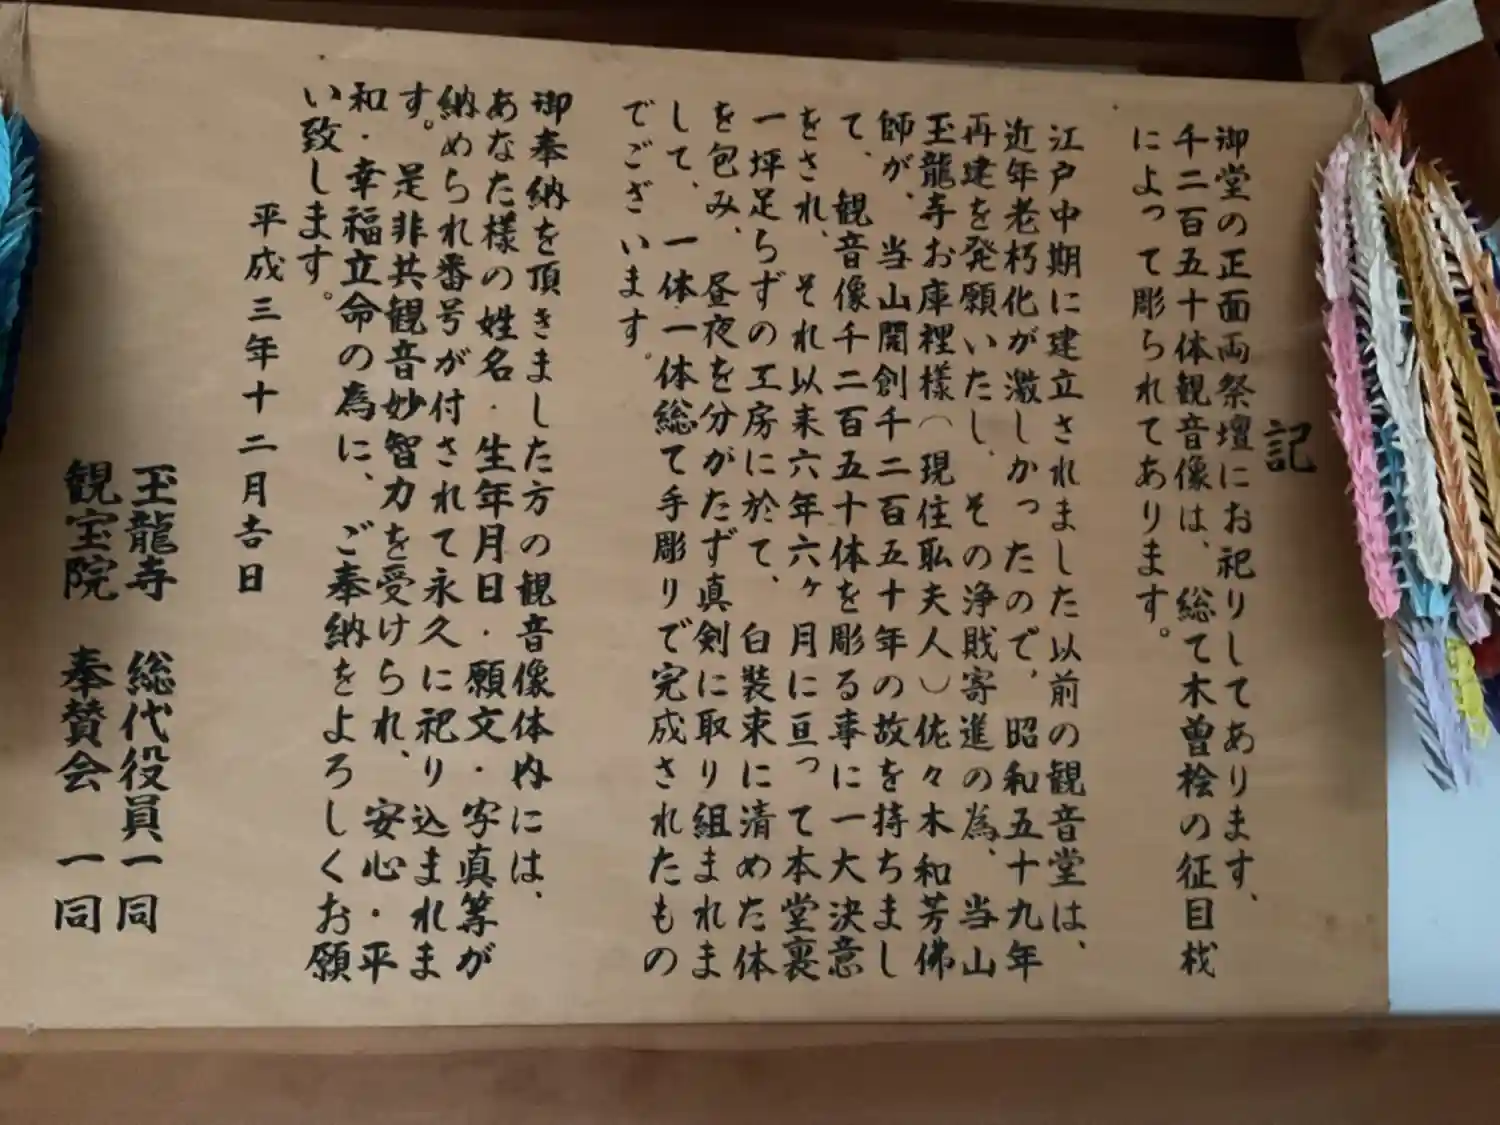 記
御堂の正面両祭壇にお祀りしてあります、
千二百五十体観音像は、総て木曽桧の征目桟
によって彫られてあります。
江戸中期に建立されました以前の観音堂は、
近年老朽化が激しかったので、昭和五十九年
再建を発願いたし、その浄財寄進の為、当山
玉龍寺お庫裡様(現住耴夫人)佐々木和芳佛
師が、当山開創千二百五十年の故を持ちまし
て、観音像千二百五十体を彫る事に一大決意
をされ、それ以来六年六ヶ月に亘って本堂裏
一坪足らずの工房に於て、白装束に清めた体
を包み、昼夜を分がたず真剣に取り組まれま
して、一体一体総て手彫りで完成されたもの
でございます。
御奉納を頂きました方の観音像体内には、
あなた様の姓名・生年月日・願文・字真等が
納められ番号が付されて永久に祀り込まれま
す。是非共観音妙智力を受けられ、安心・平
和・幸福立命の為に、ご奉納をよろしくお願
い致します。
平成三年十二月吉日
玉龍寺 総代役員一同
観宝院 奉賛会 一同